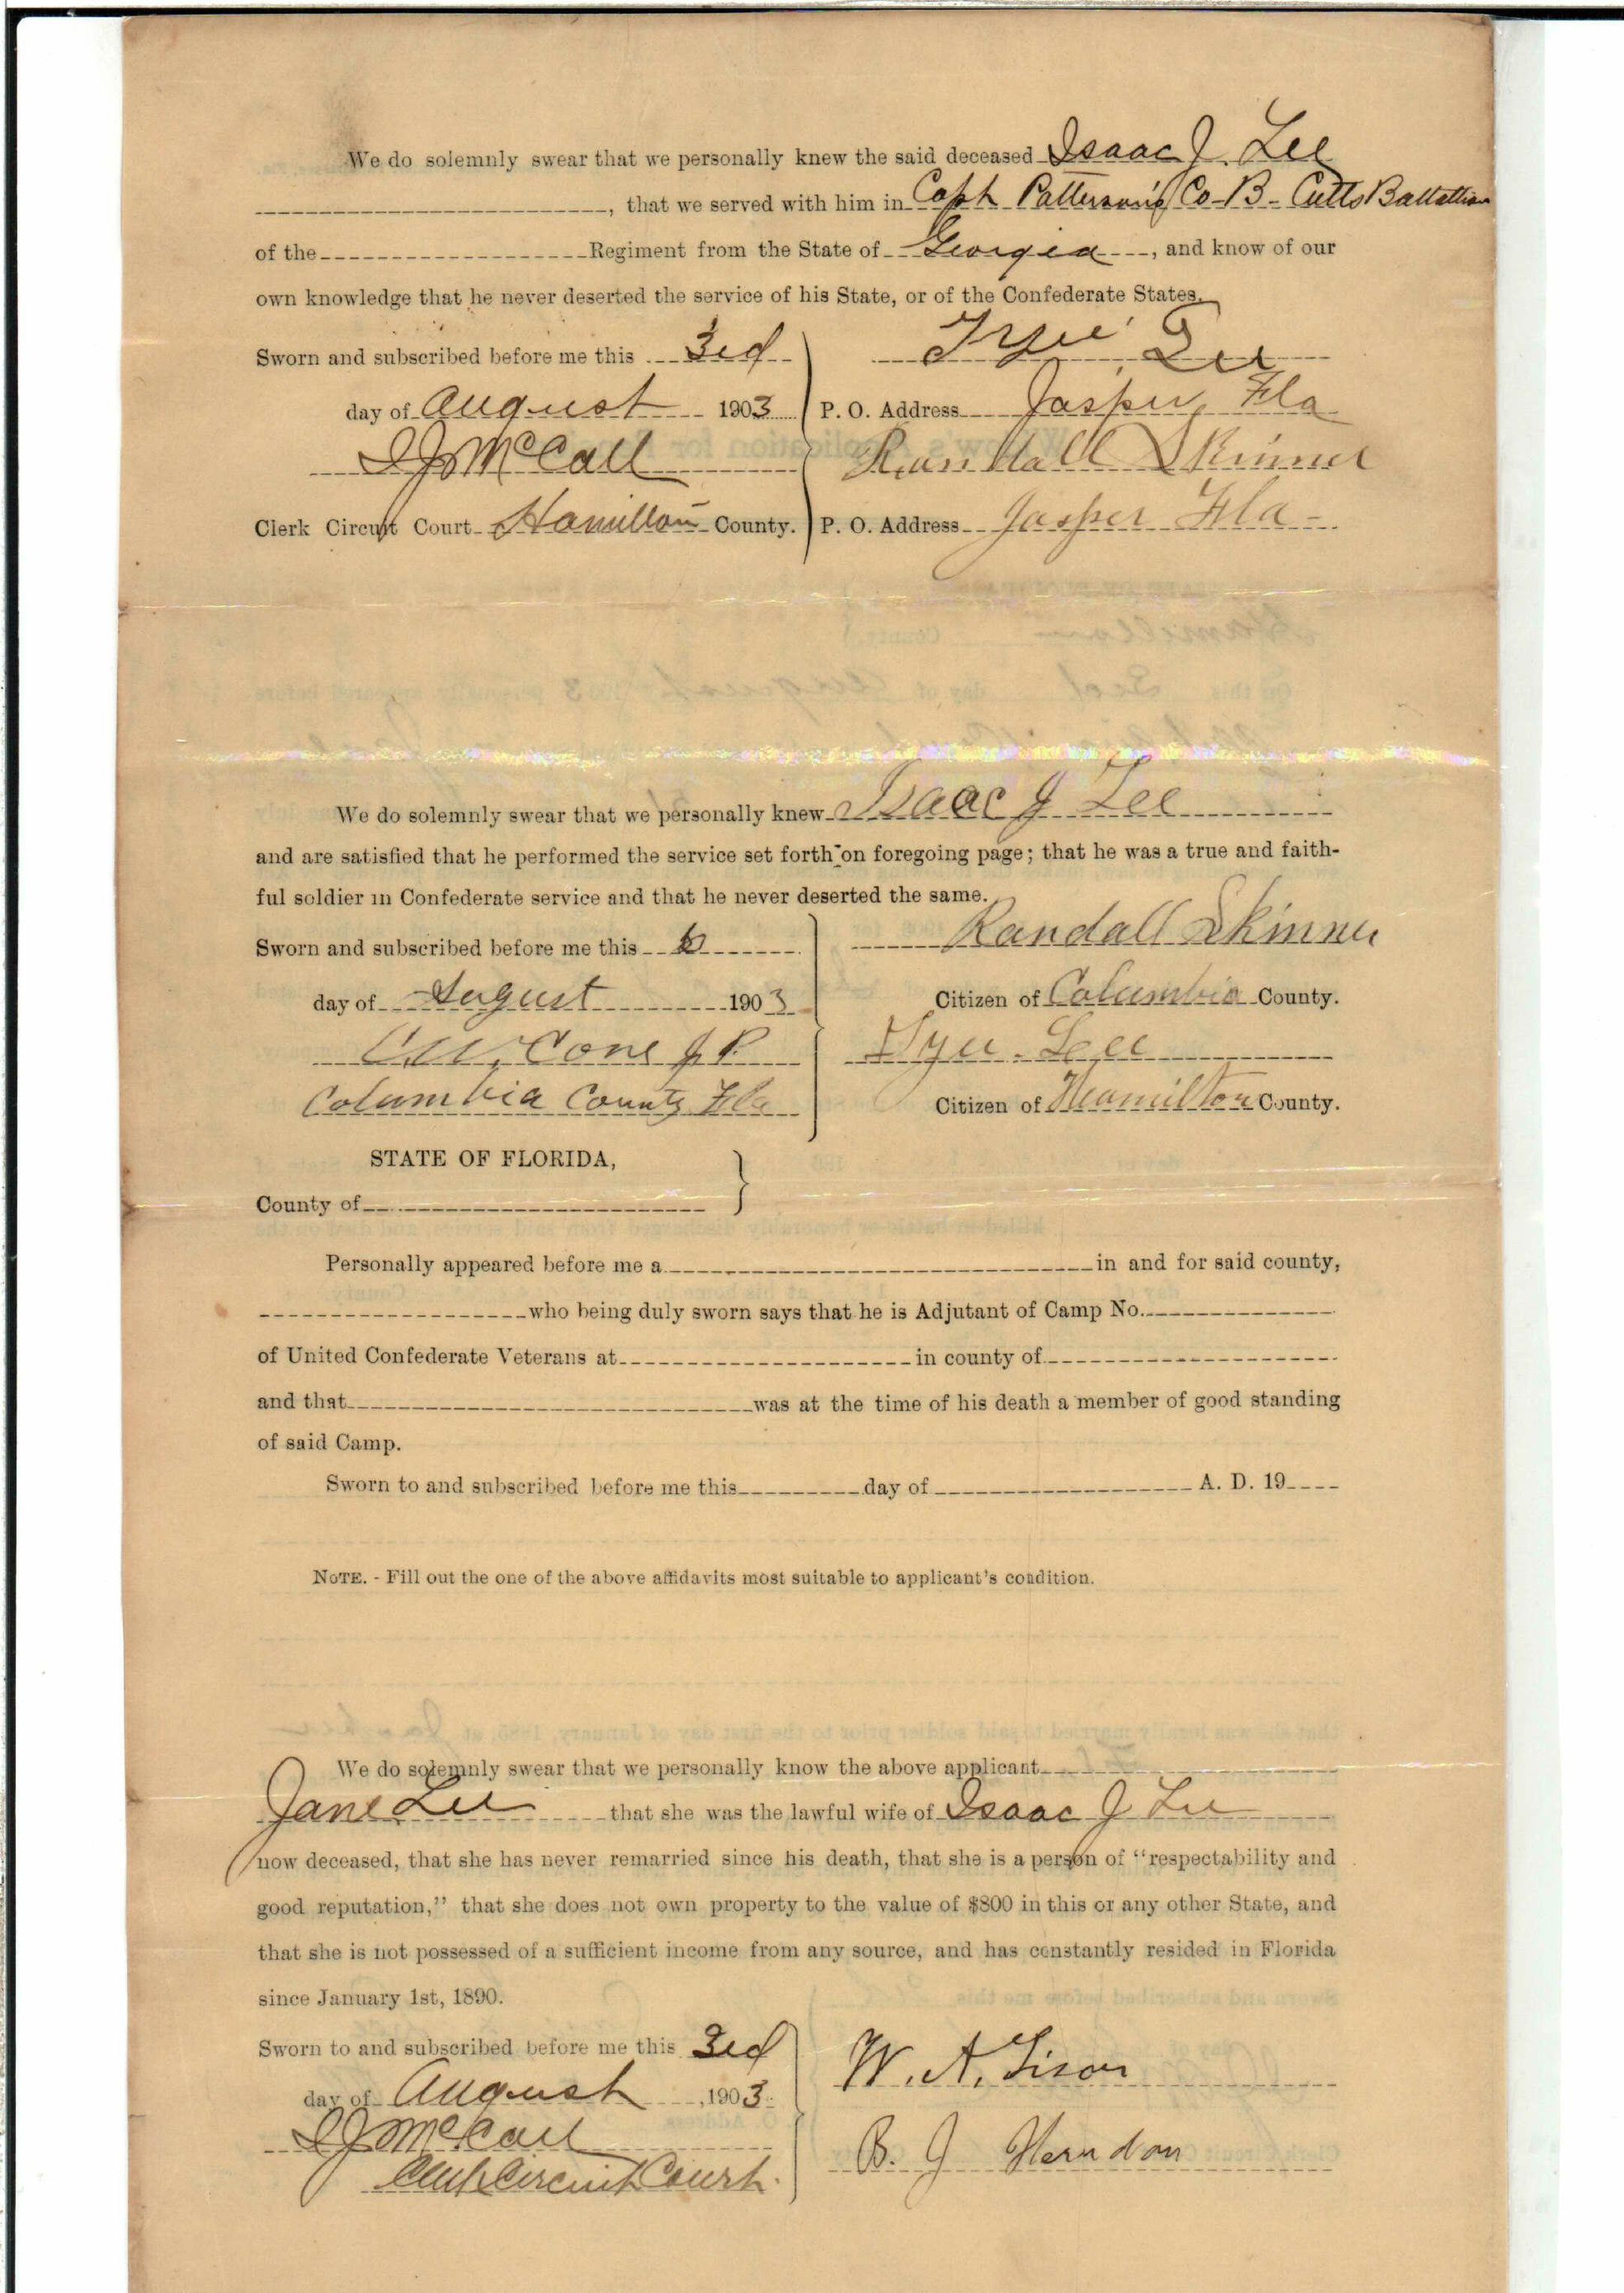 We do solemnly swear that we personally knew the said deceased Isaac J. Lee
, that we served with him in Capt Patterson's Co B - Cutts Battallion
of the Regiment from the State of Georgia, and know of our
own knowledge that he never deserted the service of his State, or of the Confederate States.
Sworn and subscribed before me this 3rd
Lee
day of August 1903
P. O. Address Jasper, Fla
McCall
Randall Skinner
Clerk Circuit Court Hamilton County.
P. O. Address Jasper Fla -
We do solemnly swear that we personally knew Isaac J Lee
and are satisfied that he performed the service set forth on foregoing page; that he was a true and faith-
ful soldier in Confederate service and that he never deserted the same.
Randall Skinner
Sworn and subscribed before me this 6
day of August 1903
Citizen of Columbia County.
Cone J P
Lee
Columbia County Fla
Citizen of Heamilton County.
STATE OF FLORIDA,
County of
Personally appeared before me a in and for said county,
who being duly sworn says that he is Adjutant of Camp No.
of United Confederate Veterans at in county of
and that was at the time of his death a member of good standing
of said Camp.
Sworn to and subscribed before me this day of A. D. 19
NOTE. - Fill out the one of the above affidavits most suitable to applicant's condition.
We do solemnly swear that we personally know the above applicant
Jane Lee that she was the lawful wife of Isaac J Lee
now deceased, that she has never remarried since his death, that she is a person of "respectability and
good reputation," that she does not own property to the value of $800 in this or any other State, and
that she is not possessed of a sufficient income from any source, and has constantly resided in Florida
since January 1st, 1890.
Sworn to and subscribed before me this 3rd
W. A. Tison
day of August, 1903.
McCall
B. J Herndon
Clerk Circuit Court.